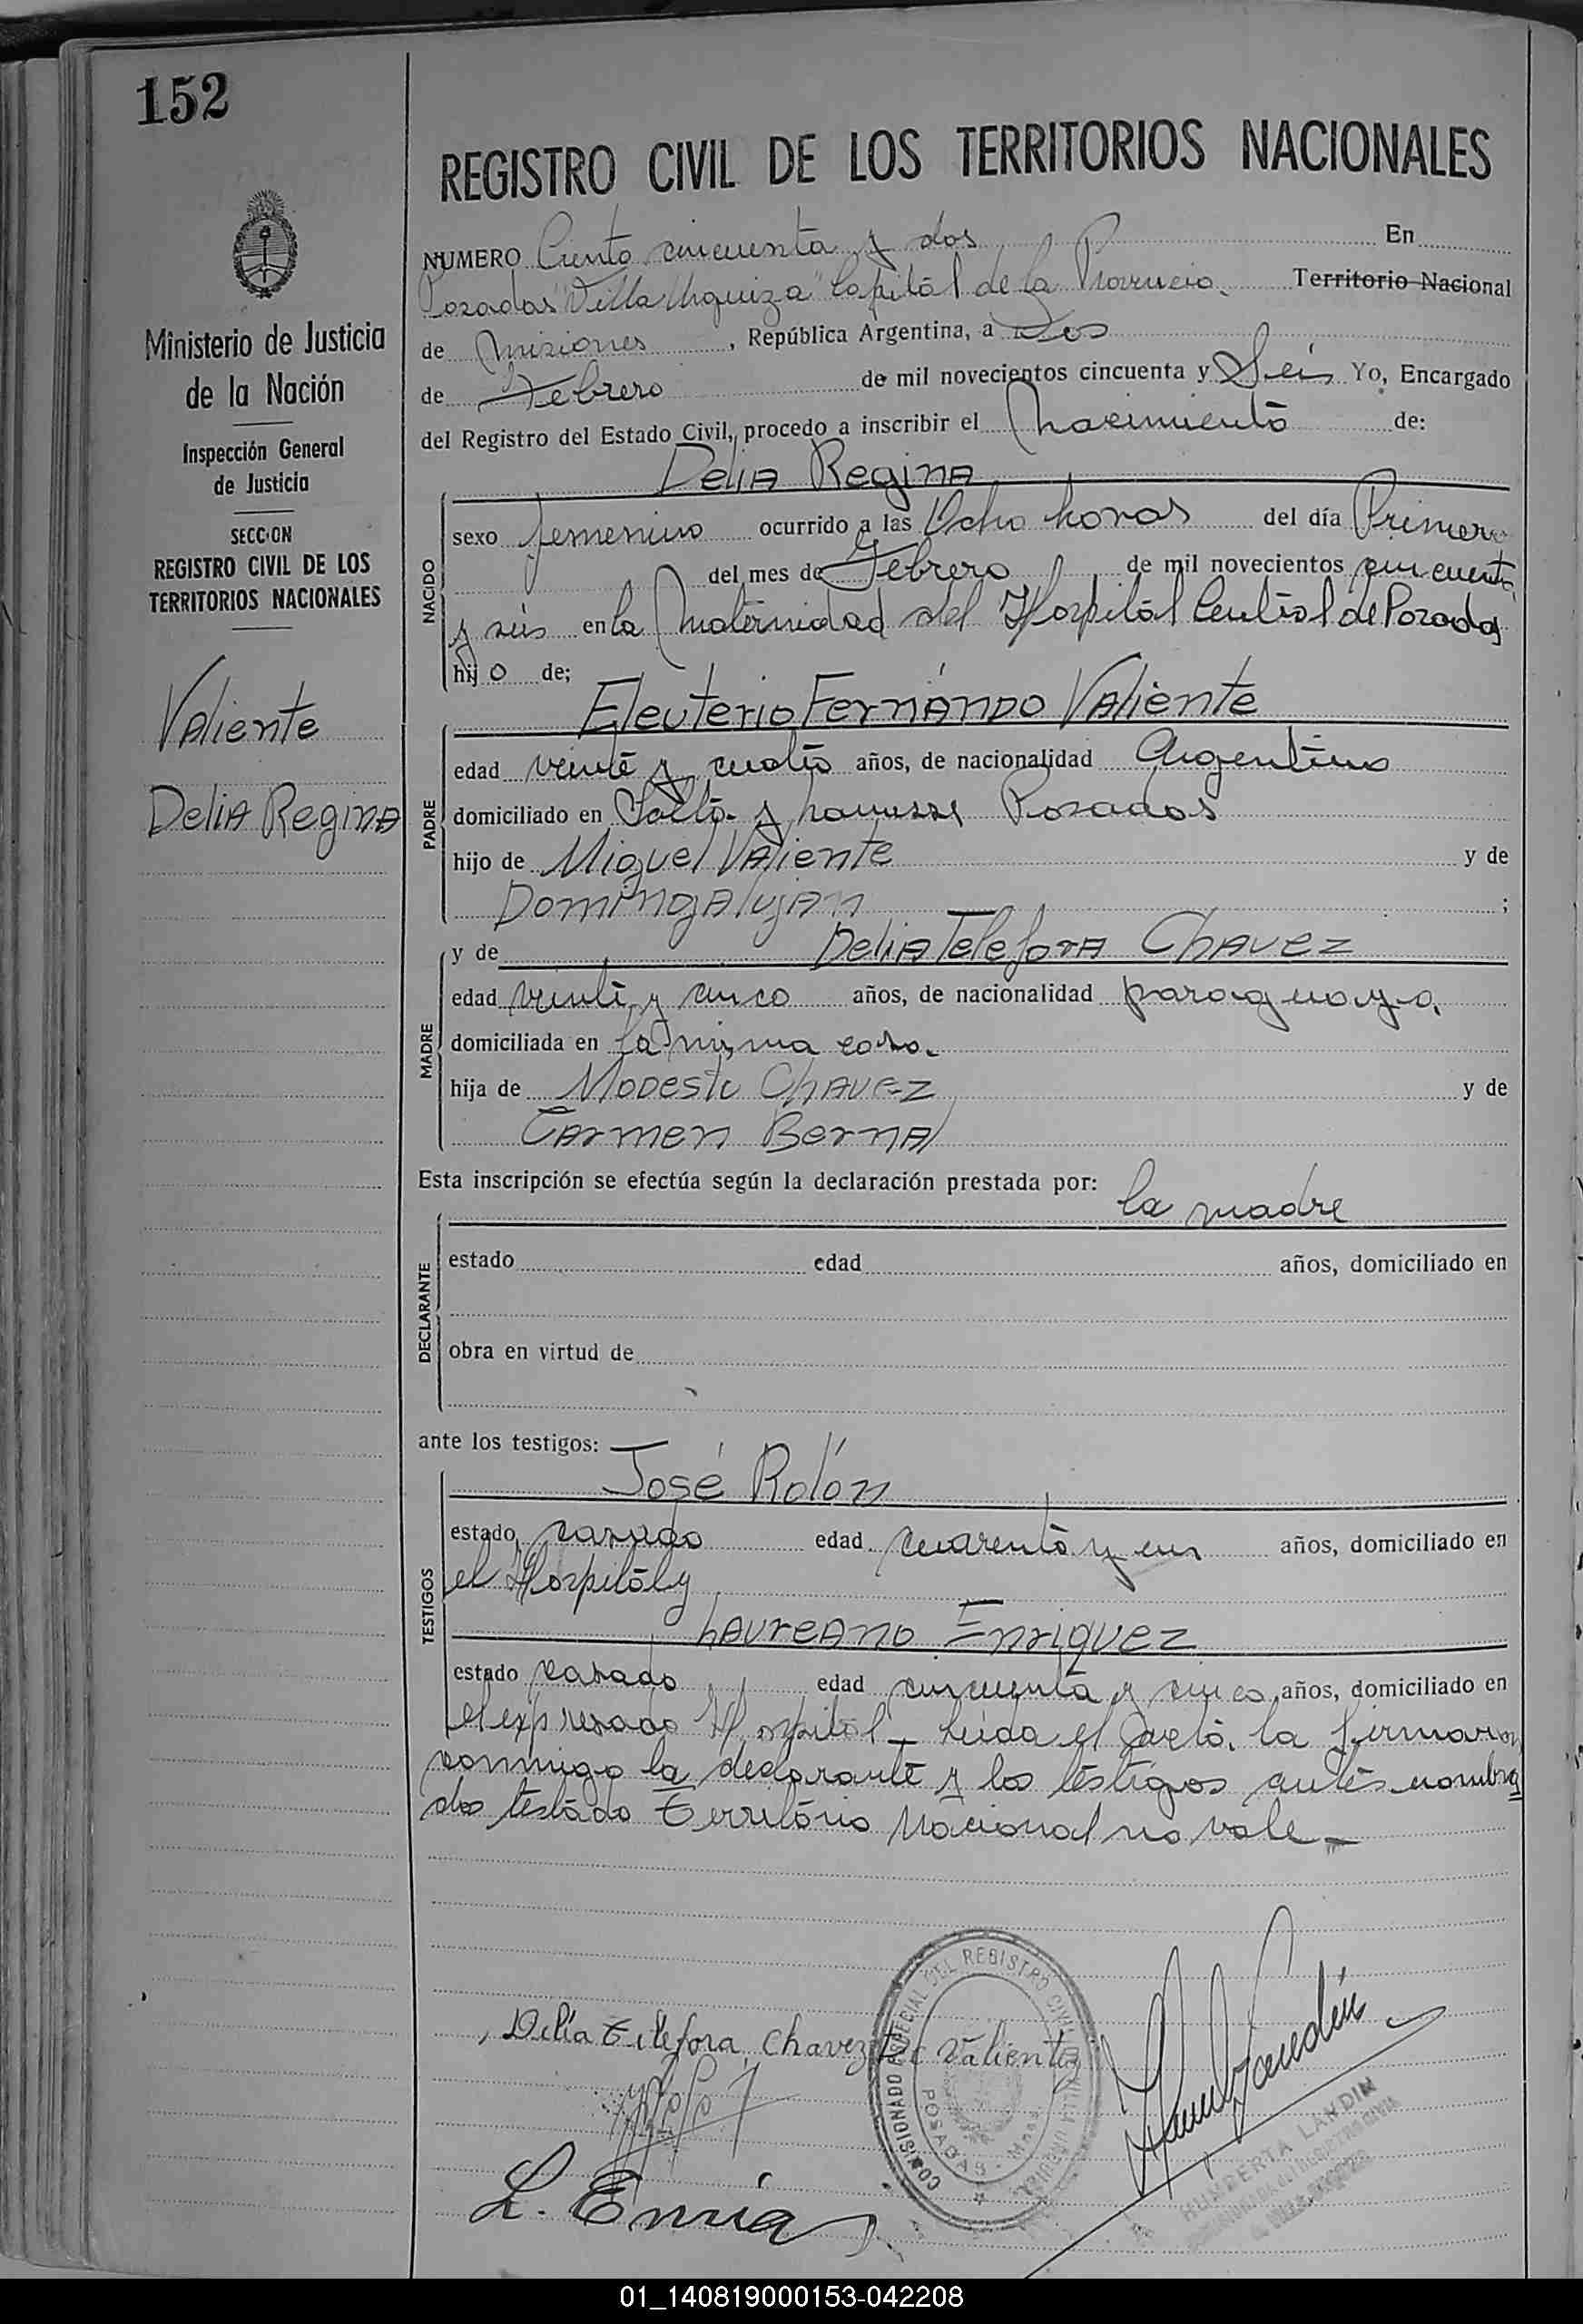 152
REGISTRO CIVIL DE LOS TERRITORIOS NACIONALES
Ministerio de Justicia
de la Nación
Inspección General
de Justicia
SECCION
REGISTRO CIVIL DE LOS
TERRITORIOS NACIONALES
Valiente
Delia Regina
NUMERO Ciento cincuenta y dos En
Posadas "Villa Urquiza" Capital de la Provincia. Territorio Nacional
de Misiones, República Argentina, a Dos
de Febrero de mil novecientos cincuenta y Seis Yo, Encargado
del Registro del Estado Civil, procedo a inscribir el Nacimiento de:
Delia Regina
NACIDO
sexo femenino ocurrido a las Ocho horas del día Primero
del mes de Febrero de mil novecientos cincuenta
y seis en la Maternidad del Hospital Central de Posadas
hijo de;
Eleuterio Fernando Valiente
PADRE
edad veinte y cuatro años, de nacionalidad Argentino
domiciliado en Salta y Posadas
hijo de Miguel Valiente y de
Dominga lujan ;
y de Delia Telefora Chavez
MADRE
edad veinte y cinco años, de nacionalidad paraguaya.
domiciliada en la misma casa.
hija de Modesto Chavez y de
Carmen Bernal
Esta inscripción se efectúa según la declaración prestada por: la madre
DECLARANTE
estado edad años, domiciliado en
obra en virtud de
ante los testigos:
José Rolón
TESTIGOS
estado casado edad cuarenta y un años, domiciliado en
el Hospital y
Laureano Enriquez
estado casado edad cincuenta y cinco años, domiciliado en
el expresado Hospital - Leida el Acta. la firmaron
conmigo la declarante y los testigos antes nombra
dos testado Territorio Nacional no vale -
Delia Telefora Chavez de Valiente
COMISIONADO ESPECIAL DEL REGISTRO CIVIL VILLA URQUIZA
POSADAS - Mnes.
HUMBERTA LANDIN
01_140819000153-042208